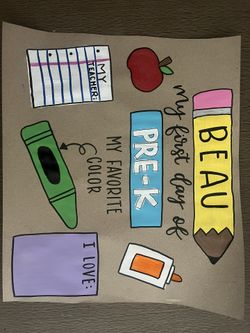 BEAU
my first day of
PRE-K
MY
TEACHER:
MY FAVORITE
COLOR
I LOVE: